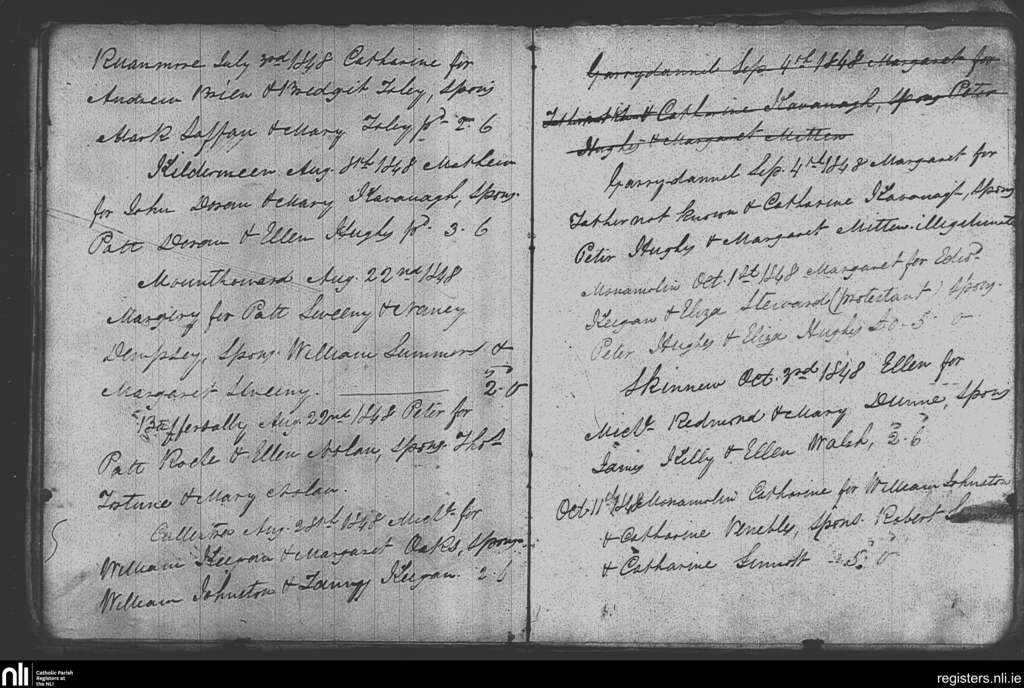 Ruanmore July 3rd 1848 Catharine for
Andrew Brien & Bridgit Foley, Spons
Mark Saffan & Mary Foley pd 2. 6
Kildermeen Aug. 8th 1848 Mathew
for John Doran & Mary Kavanagh, Spons.
Patt Doran & Ellen Hughs pd. 3. 6
Mounthoward Aug. 22nd 1848
Margery for Patt Sweeny & Naney
Dempsey, Spons. William Summors &
Margaret Sweeny. 2-0
Aug. 22nd 1848 Peter for
Patt Roche & Ellen Nolan, Spons. Thos.
Fortune & Mary Nolan.
Aug. 28th 1848 Michl. for
William Keegan & Margaret Oaks, Spons.
William Johnston & Keegan. 2. 6
Garrydannel Sep 4th 1848 Margaret for
& Catharine Kavanagh, Spons Peter
Hughs & Margaret Mitten
Garrydannel Sep. 4th 1848 Margaret for
Father not known & Catharine Kavanagh, Spons
Peter Hughs & Margaret Mitten. illigetimate
Monamolin Oct. 1st 1848 Margaret for Edwd.
Keegan & Eliza Steward (protestant) Spons.
Peter Hughs & Eliza Hughs £0-5-0
Skinnew Oct. 3rd 1848 Ellen for
Michl. Redmond & Mary Dunne, Spons
James Kelly & Ellen Walsh, 2. 6
Oct. 11th 1848 Monamolin Catharine for William Johnston
& Catharine Venebles, Spons. Robert
& Catharine Sinnott 5. 0
nli
Catholic Parish
Registers at
the NLI
registers.nli.ie